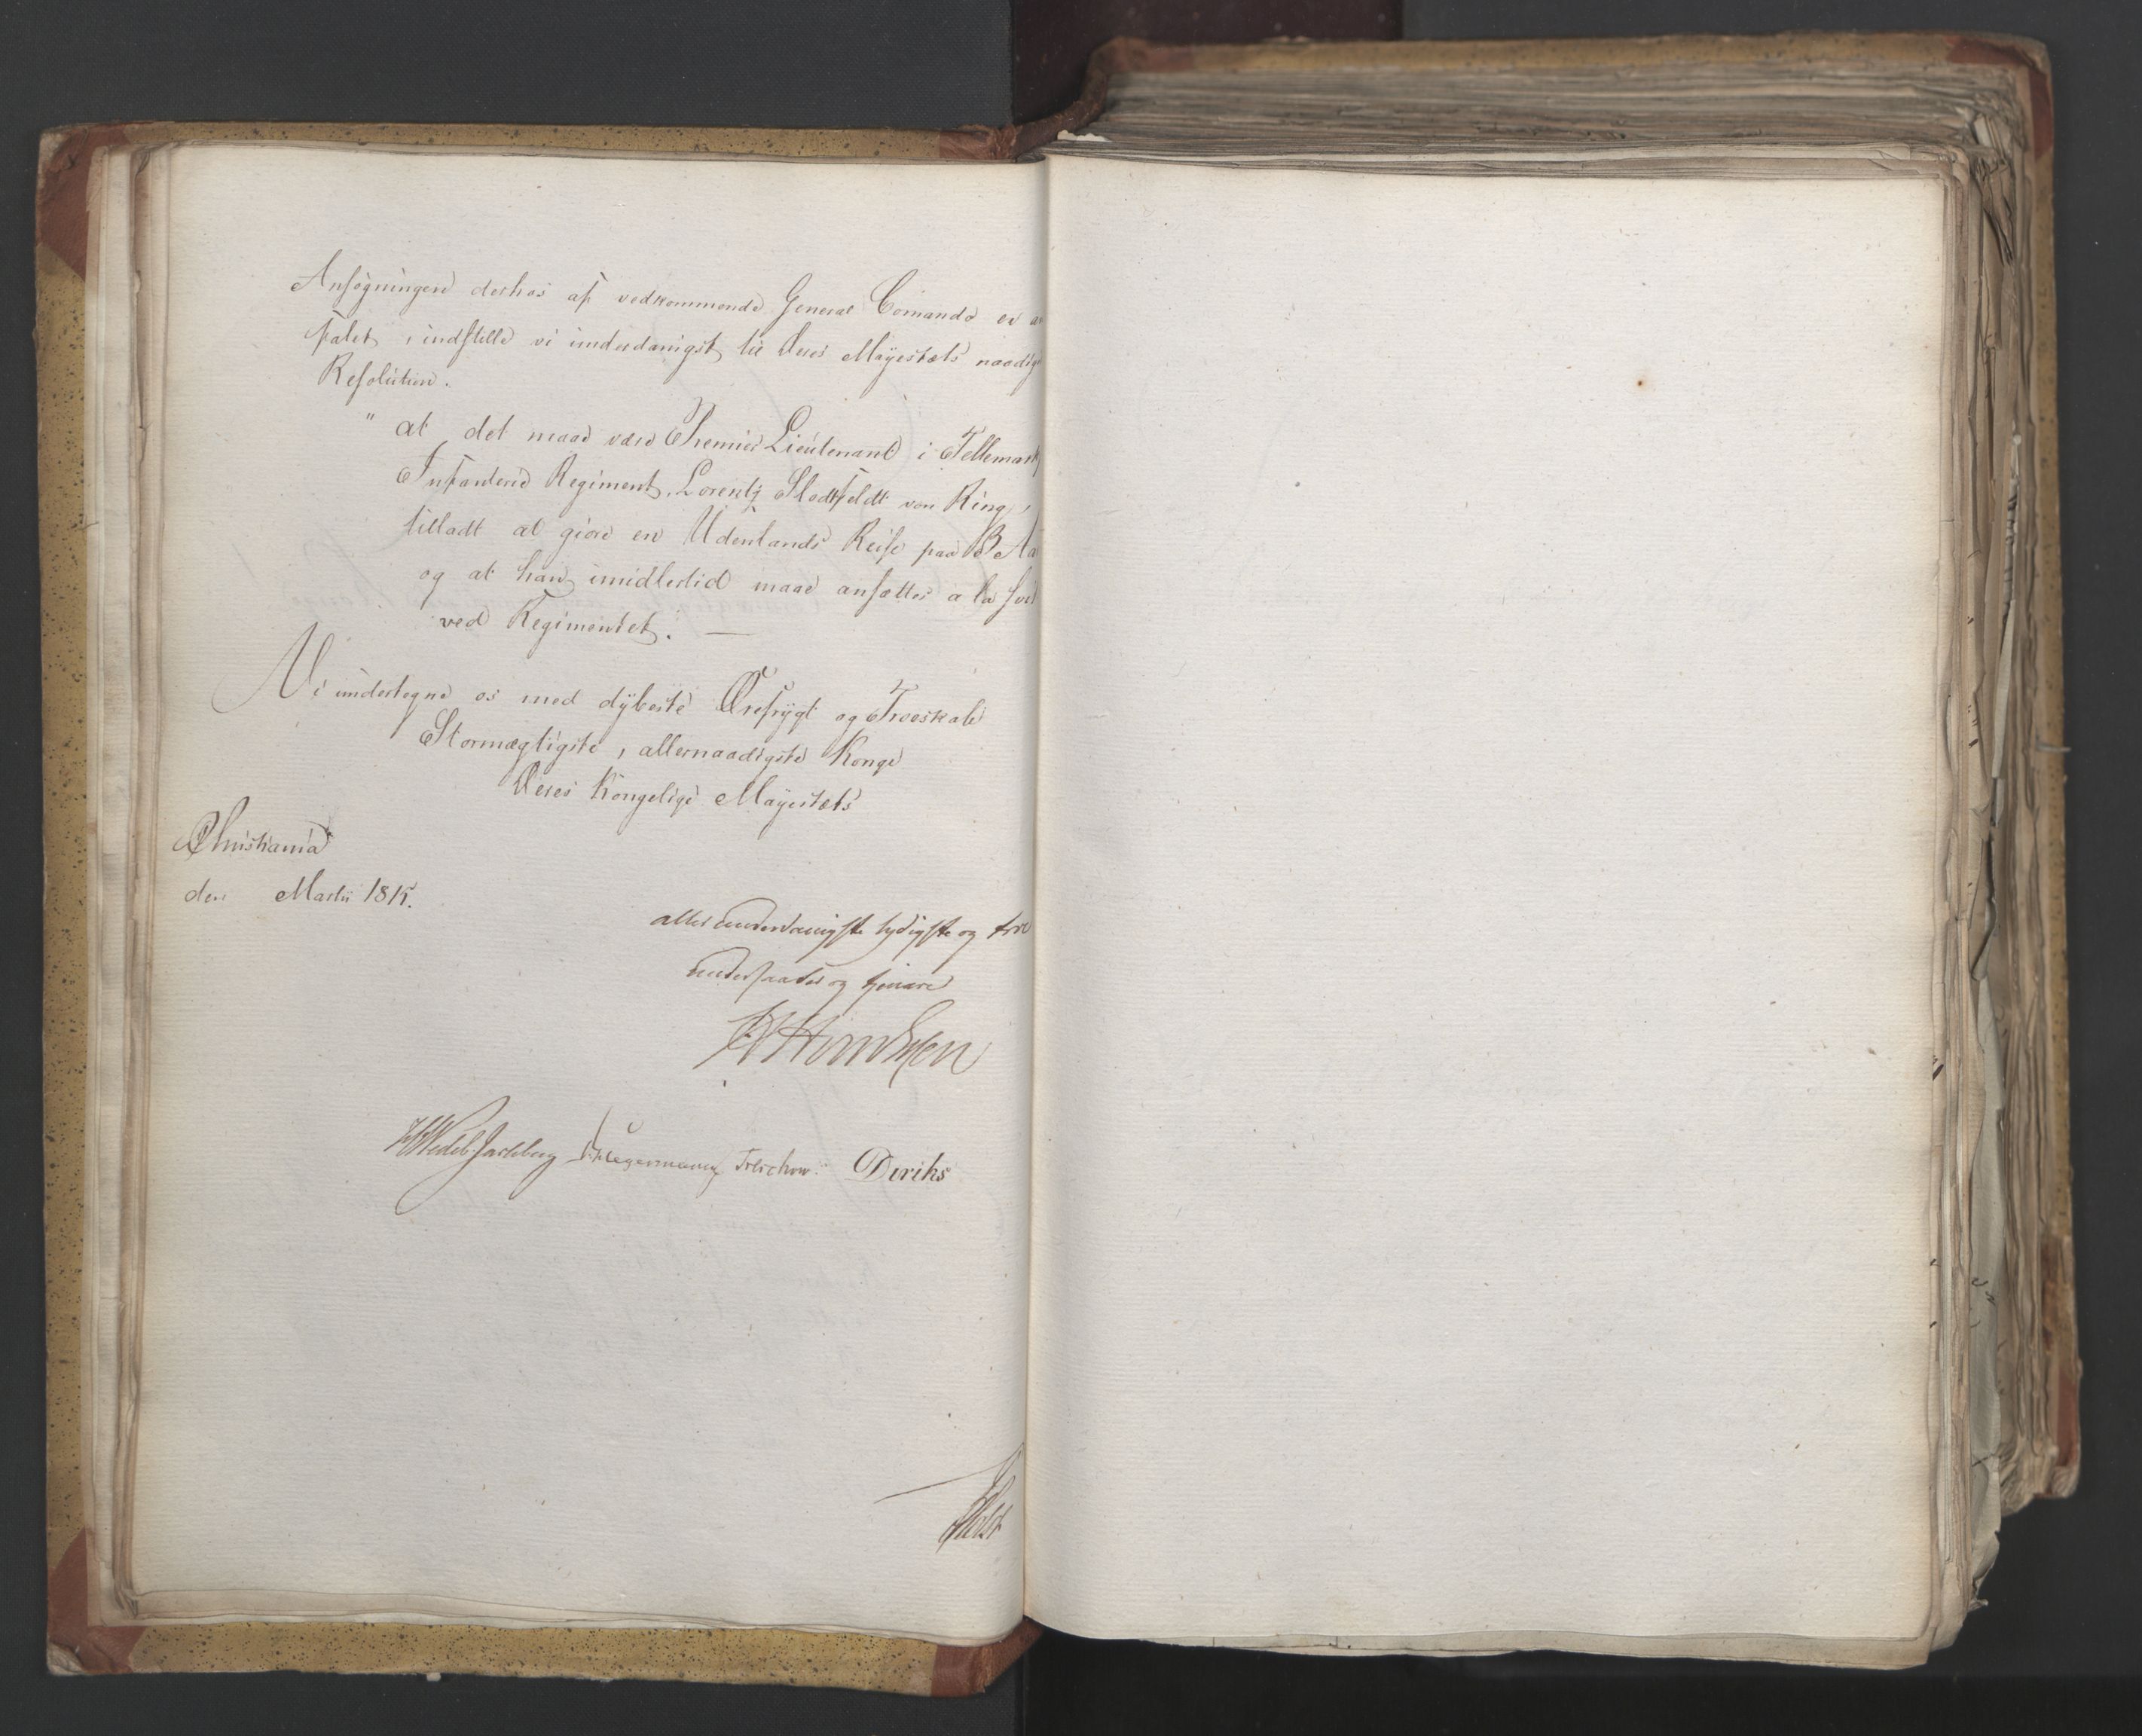 Ansøgningen derhos af vedkommende General Comando er an
falet, indstille vi underdanigst til Deres Mayestæts naadige
Resolution.
" at det maae være Premier Lieutenant i Tellemark
Infanterie Regiment, Lorentz Slodtfeldt von Ring,
tilladt at giøre en Udenlands Reise paa 3 Aa
og at han imidlertid maae ansættes a la suit
ved Regimentet. —
Vi undertegne os med dybeste Ærefrygt og Troeskab
Stormægtigste, allernaadigste Konge
Deres Kongelige Mayestæts
Christiania
den Martii 1815.
allerunderdanigste lydigste og troe
undersaatter og tjenere
M Wedel Jarlsberg Hegermann Treschow. Diriks
Holst